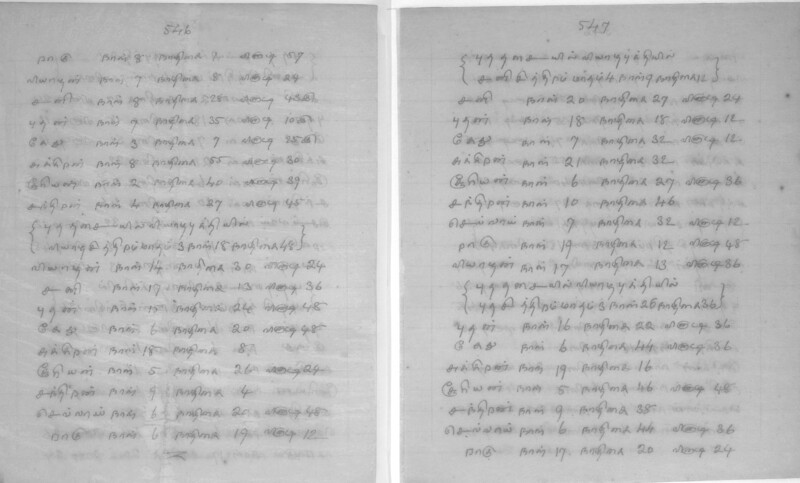 546
ராகு நாள் 8 நாழிகை 7 விகடி 57
வியாழன் நாள் 7 நாழிகை 8 விகடி 24
சனி நாள் நாழிகை விகடி
புதன் நாள் 7 நாழிகை 35 விகடி
கேது நாள் 3 நாழிகை 7 விகடி
சுக்கிரன் நாள் 8 நாழிகை 55 விகடி 30
சூரியன் நாள் 2 நாழிகை 40 விகடி 39
சந்திரன் நாள் 4 நாழிகை 27 விகடி 45
புததசை
3 நாள் 18 நாழிகை 48
வியாழன் நாள் 14 நாழிகை 30 விகடி 24
சனி நாள் 17 நாழிகை 13 விகடி 36
புதன் நாள் 15 நாழிகை 24 விகடி 48
கேது நாள் 6 நாழிகை 20 விகடி 48
சுக்கிரன் நாள் 18 நாழிகை 8
சூரியன் நாள் 5 நாழிகை 26 விகடி 24
சந்திரன் நாள் 9 நாழிகை 4
செவ்வாய் நாள் 6 நாழிகை 20 விகடி 48
ராகு நாள் 6 நாழிகை 19 விகடி 12
547
புததசை
4 நாள் 9 நாழிகை 12
சனி நாள் 20 நாழிகை 27 விகடி 24
புதன் நாள் 18 நாழிகை 18 விகடி 12
கேது நாள் 7 நாழிகை 32 விகடி 12
சுக்கிரன் நாள் 21 நாழிகை 32
சூரியன் நாள் 6 நாழிகை 27 விகடி 36
சந்திரன் நாள் 10 நாழிகை 46
செவ்வாய் நாள் 7 நாழிகை 32 விகடி 12
ராகு நாள் 19 நாழிகை 12 விகடி 48
வியாழன் நாள் 17 நாழிகை 13 விகடி 36
புததசை
3 நாள் 25 நாழிகை 36
புதன் நாள் 16 நாழிகை 22 விகடி 36
கேது நாள் 6 நாழிகை 44 விகடி 36
சுக்கிரன் நாள் 19 நாழிகை 16
சூரியன் நாள் 5 நாழிகை 46 விகடி 48
சந்திரன் நாள் 9 நாழிகை 38
செவ்வாய் நாள் 6 நாழிகை 44 விகடி 36
ராகு நாள் 17 நாழிகை 20 விகடி 24